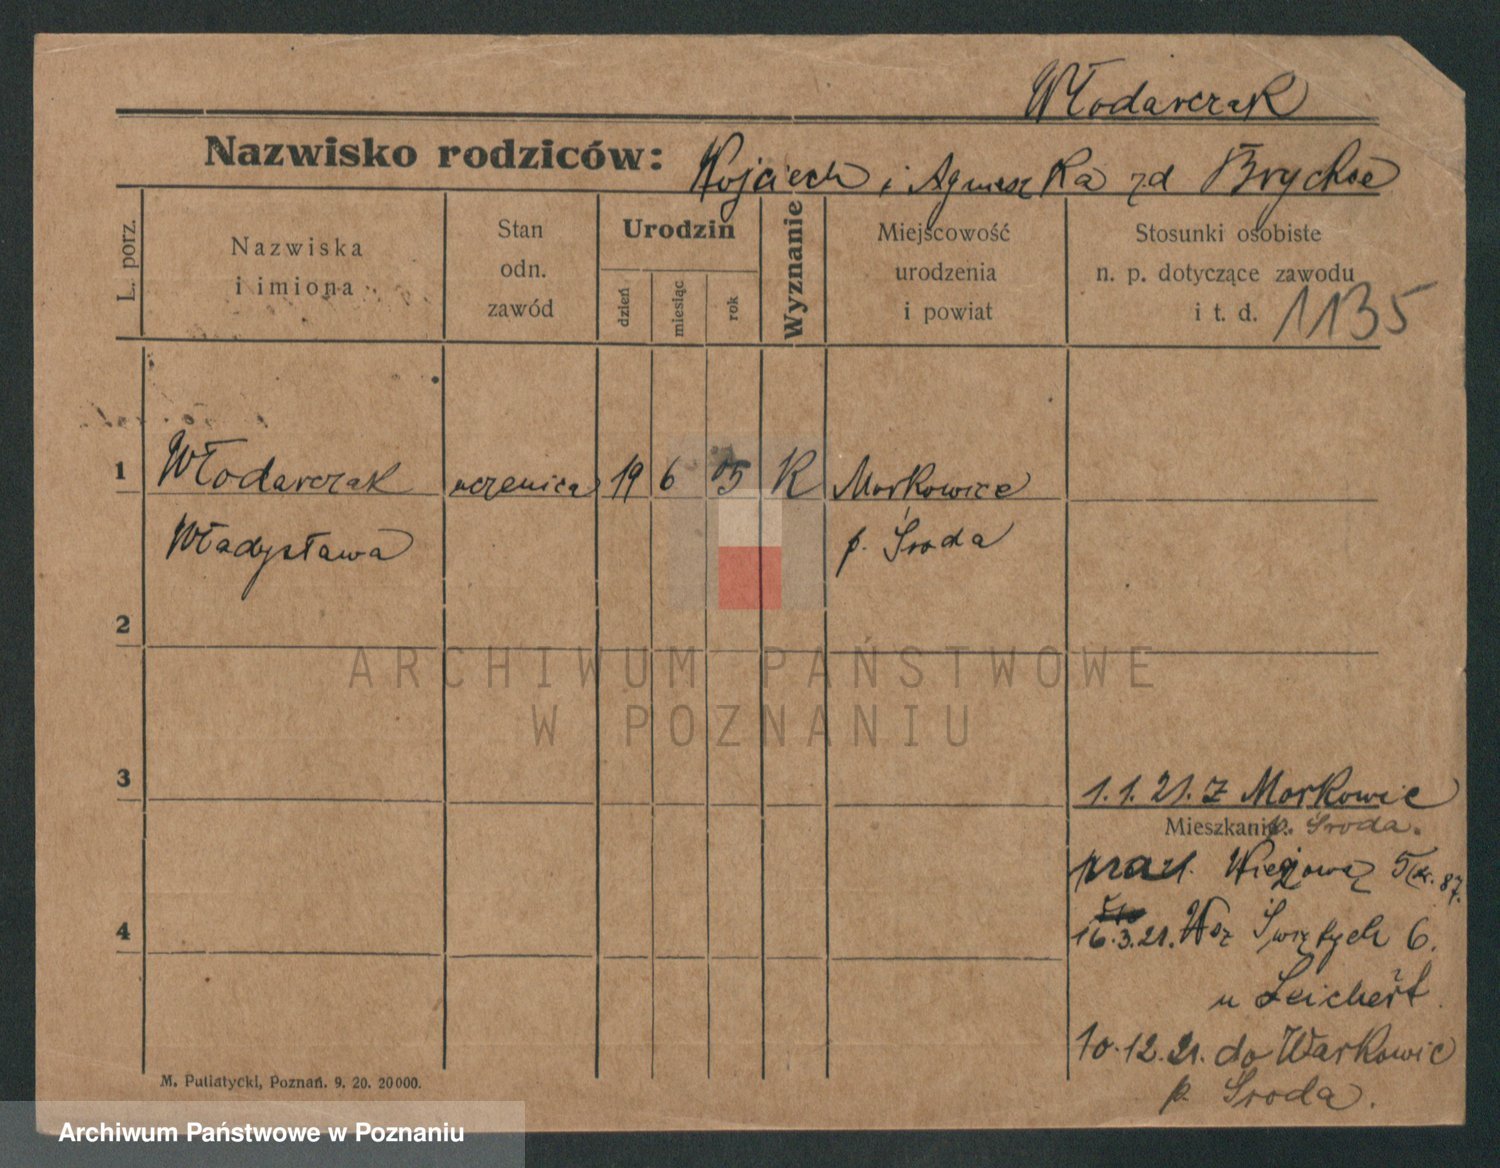 Włodarczak
Nazwisko rodziców: Wojciech i Agnieszka zd Brychce
L. porz.
Nazwiska
i imiona
Stan
odn.
zawód
Urodzin
dzień
miesiąc
rok
Wyznanie
Miejscowość
urodzenia
i powiat
Stosunki osobiste
n. p. dotyczące zawodu
i t. d. 1135
1 Włodarczak uczenica 19 6 05 K Morkowice
Władysława p. Środa
2
ARCHIWUM PAŃSTWOWE
W POZNANIU
3
1.1.21. z Morkowic
Mieszkanie p. Środa.
Wieżowa 5 87.
4
16.3.21. Wsz Świętych 6.
u Leichert
10.12.21. do Warkowic
p. Środa.
M. Putiatycki, Poznań. 9. 20. 20000.
Archiwum Państwowe w Poznaniu